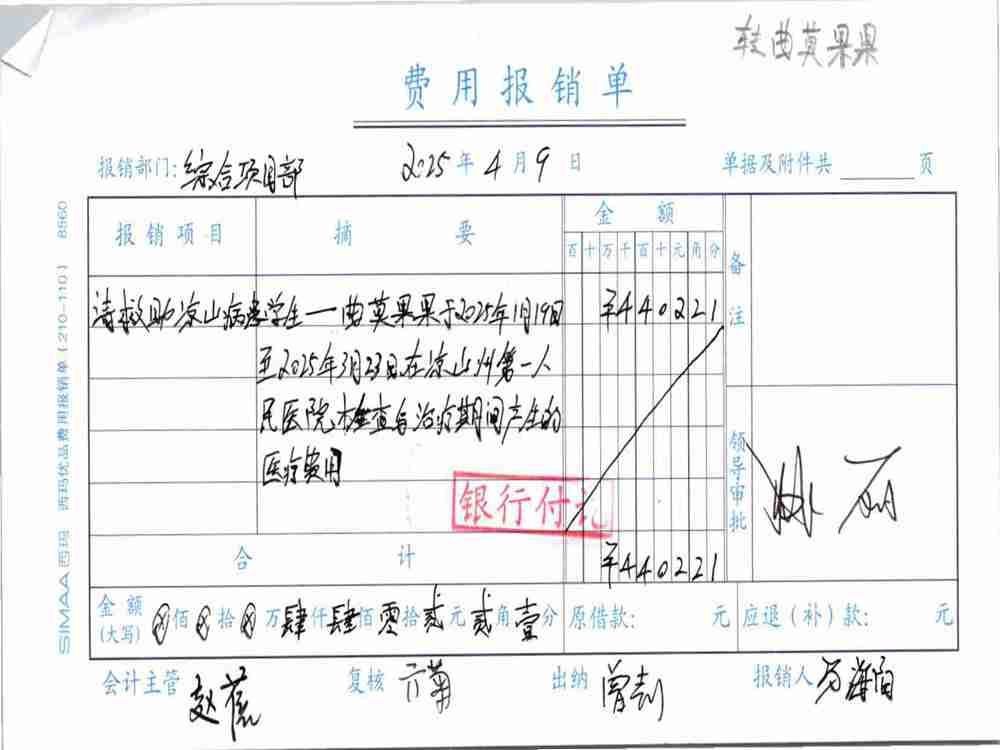 转曲莫果果
费用报销单
报销部门: 综合项目部 2025年4月9日 单据及附件共 页
报销项目 摘要 金额 备注
百十万千百十元角分
请救助凉山病患学生一曲莫果果于2025年1月19日 ¥440221
至2025年3月23日在凉山州第一人
民医院检查后治疗期间产生的
医疗费用
银行付讫
领导审批
合计 ¥440221
金额(大写) ⊗佰⊗拾⊗万肆仟肆佰零拾贰元贰角壹分 原借款: 元 应退(补)款: 元
会计主管 复核 出纳 报销人
SIMAA西玛 西玛优品费用报销单(210-110) 8560